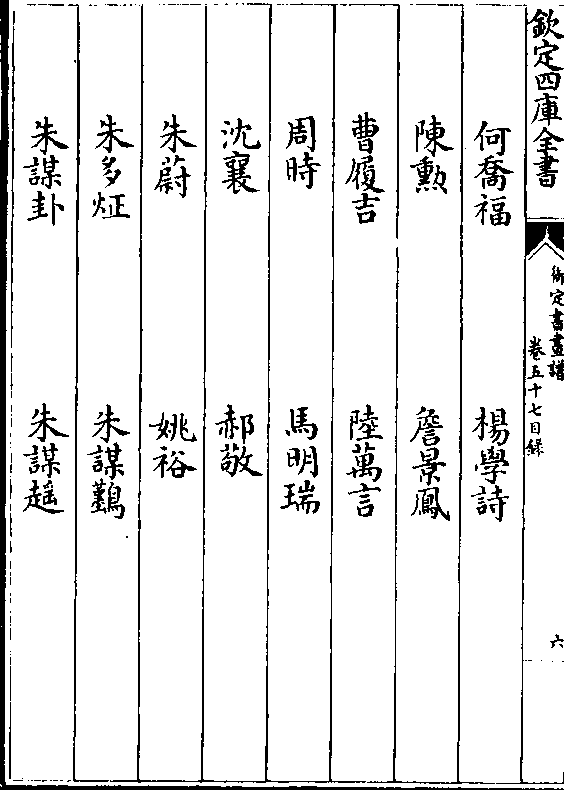 欽定四庫全書
御定書畫譜
卷五十七目錄
六
何喬福 楊學詩
陳勲 詹景鳳
曹履吉 陸萬言
周時 馬明瑞
沈襄 郝敬
朱蔚 姚裕
朱多炡 朱謀鷏
朱謀卦 朱謀趯